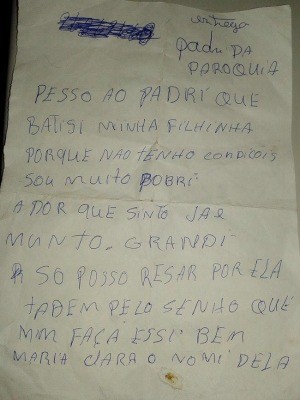 entrega
padri DA
PAROQUIA
PESSO AO PADRI QUE
BATISI MINHA FILHINHA
PORQUE NAO TENHO condicois
SOU MUITO POBRI
A DOR QUE SINTO JA E
MUNTO. GRANDI
SO POSSO RESAR POR ELA
TADEM PELO SENHO QUE
MIM FAÇA ESSI BEM
MARIA CLARA O NOMI DELA